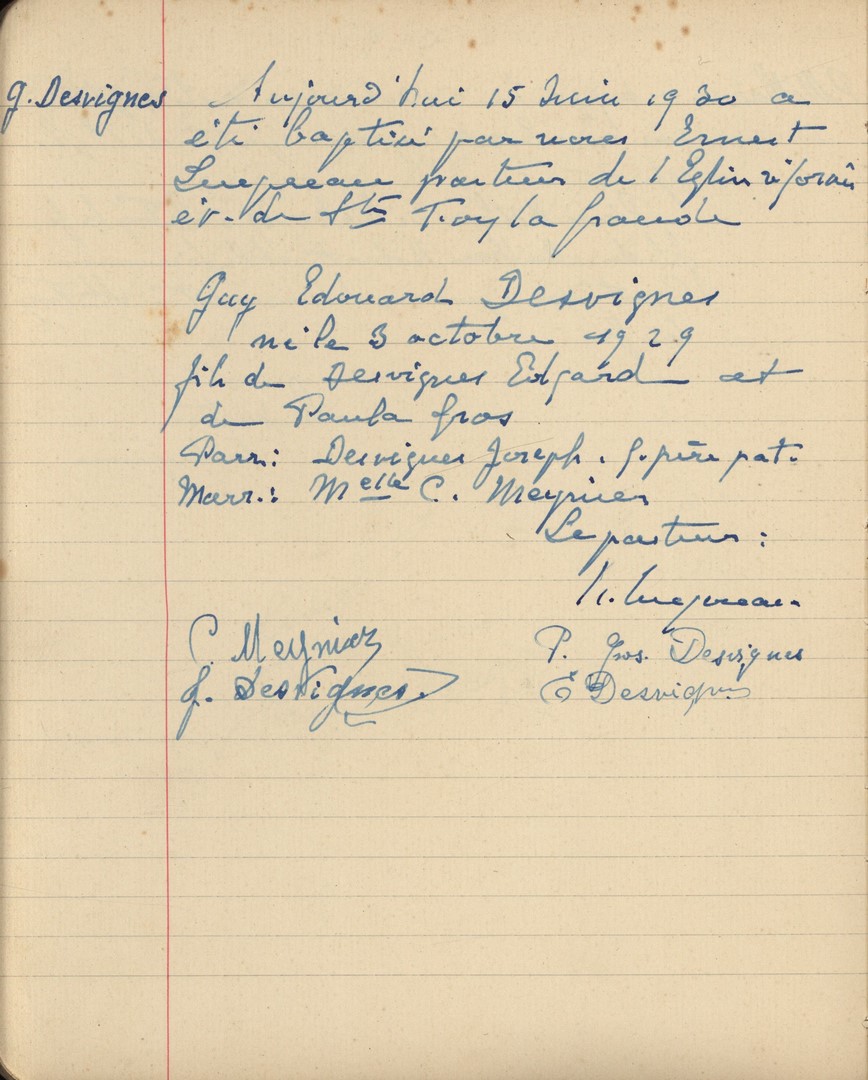 G. Desvignes
Aujourd'hui 15 Juin 1930 a
été baptisé par nous Ernest
pasteur de l'Eglise réformée
év. de Ste Foy la grande
Guy Edouard Desvignes
né le 3 octobre 1929
fils de Desvignes Edgard et
de Paula Gros
Parr.: Desvignes Joseph. g. père pat.
Marr.: Melle C. Meynier
Le pasteur:
C. Meynier
P. Gros. Desvignes
J. Desvignes.
E Desvignes